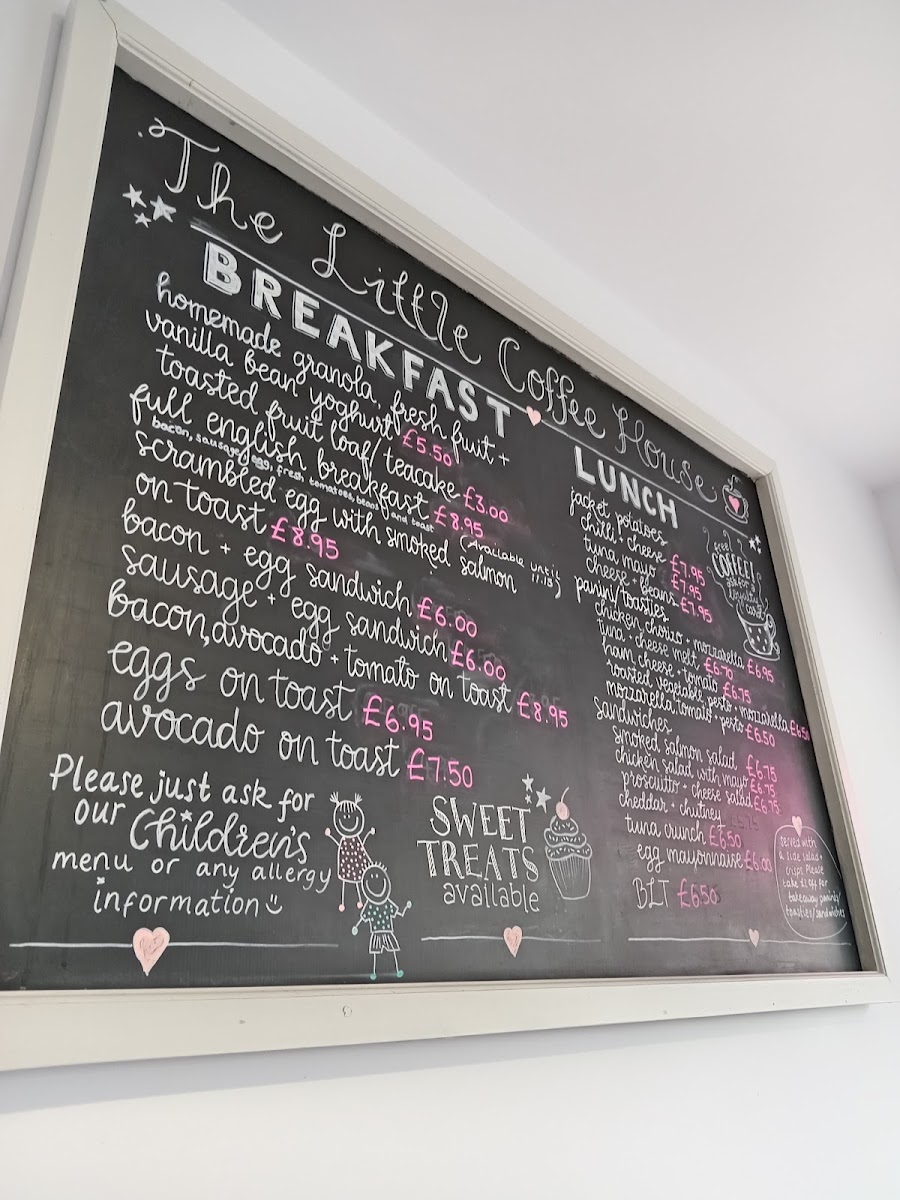 The Little Coffee House
BREAKFAST
homemade granola, fresh fruit +
vanilla bean yoghurt £5.50
toasted fruit loaf/teacake £3.00
full english breakfast £8.95
bacon, sausage, egg, fresh tomatoes, beans and toast
(Available until 11:15)
scrambled egg with smoked salmon
on toast £8.95
bacon + egg sandwich £6.00
sausage + egg sandwich £6.00
bacon, avocado + tomato on toast £8.95
eggs on toast £6.95
avocado on toast £7.50
Please just ask for
our Children's
menu or any allergy
information
SWEET
TREATS
available
LUNCH
jacket potatoes
chilli + cheese £7.95
tuna mayo £7.95
cheese + beans £7.95
panini/toasties
chicken, chorizo + mozzarella £6.95
tuna + cheese melt £6.70
ham cheese + tomato £6.75
toasted vegetables, pesto + mozzarella £6.50
mozzarella, tomato + pesto £6.50
sandwiches
smoked salmon salad £6.75
chicken salad with mayo £6.75
prosciutto + cheese salad £6.75
cheddar + chutney
tuna crunch £6.50
egg mayonnaise £6.00
BLT £6.50
free
COFFEE!
ask for a
loyalty
card
served with
a side salad +
crisps. Please
take £1 off for
takeaway paninis/
toasties/sandwiches